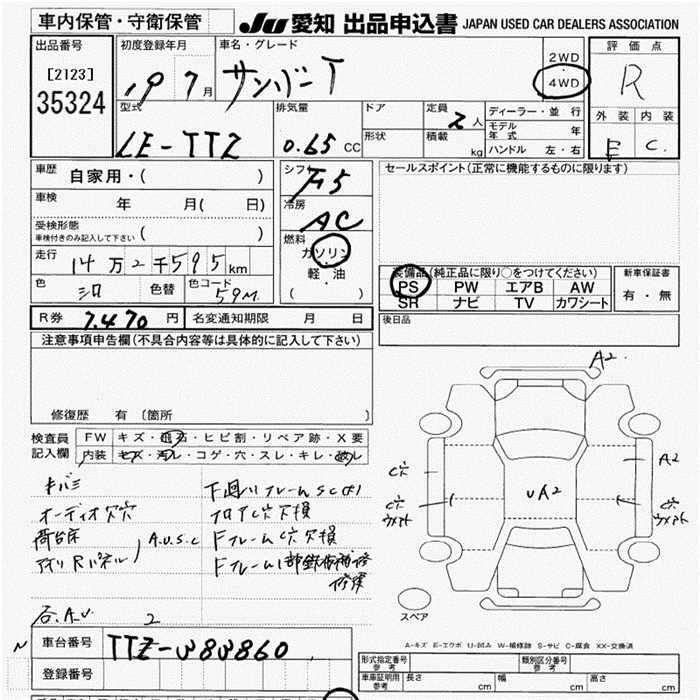 車内保管・守衛保管
JU 愛知 出品申込書 JAPAN USED CAR DEALERS ASSOCIATION
出品番号
[2123]
35324
初度登録年月
19 7 月
車名・グレード
サンバーT
2WD
・
4WD
評価点
R
外装 内装
E C
型式
LE-TTZ
排気量
0.65 CC
ドア
形状
定員
2 人
積載
kg
ディーラー・並行
モデル年式 年
ハンドル 左・右
車歴
自家用・( )
車検
年 月( 日)
受検形態
車検付きのみ記入して下さい ( )
走行
14万2千595km
色
シロ
色替
色コード
59M
シフト
F5
冷房
AC
燃料
ガソリン
軽・油
( )
セールスポイント(正常に機能するものに限ります)
装備品(純正品に限り○をつけてください)
PS PW エアB AW
SR ナビ TV カワシート
新車保証書
有・無
R券 7,470 円
名変通知期限 月 日
後日品
注意事項申告欄(不具合内容等は具体的に記入して下さい)
修復歴 有 〔箇所 〕
検査員
記入欄
FW キズ・飛石・ヒビ割・リペア跡・X要
内装 キズ・汚レ・コゲ・穴・スレ・キレ・破レ
キバミ
オーディオ欠穴
荷台床
アオリRパネル
A.U.S.C
右A.U 2
下廻りフレームSC(オ)
フロアC穴欠損
FフレームC穴欠損
A2
A2
C穴
C穴
ウメアト
UA2
C穴
ウメアト
スペア
A-キズ E-エクボ U-凹み W-補修跡 S-サビ C-腐食 XX-交換済
車台番号 TTZ-383860
登録番号
N
形式指定番号
参考
類別区分番号
参考
車庫証明用
参考
長さ cm
幅 cm
高さ cm